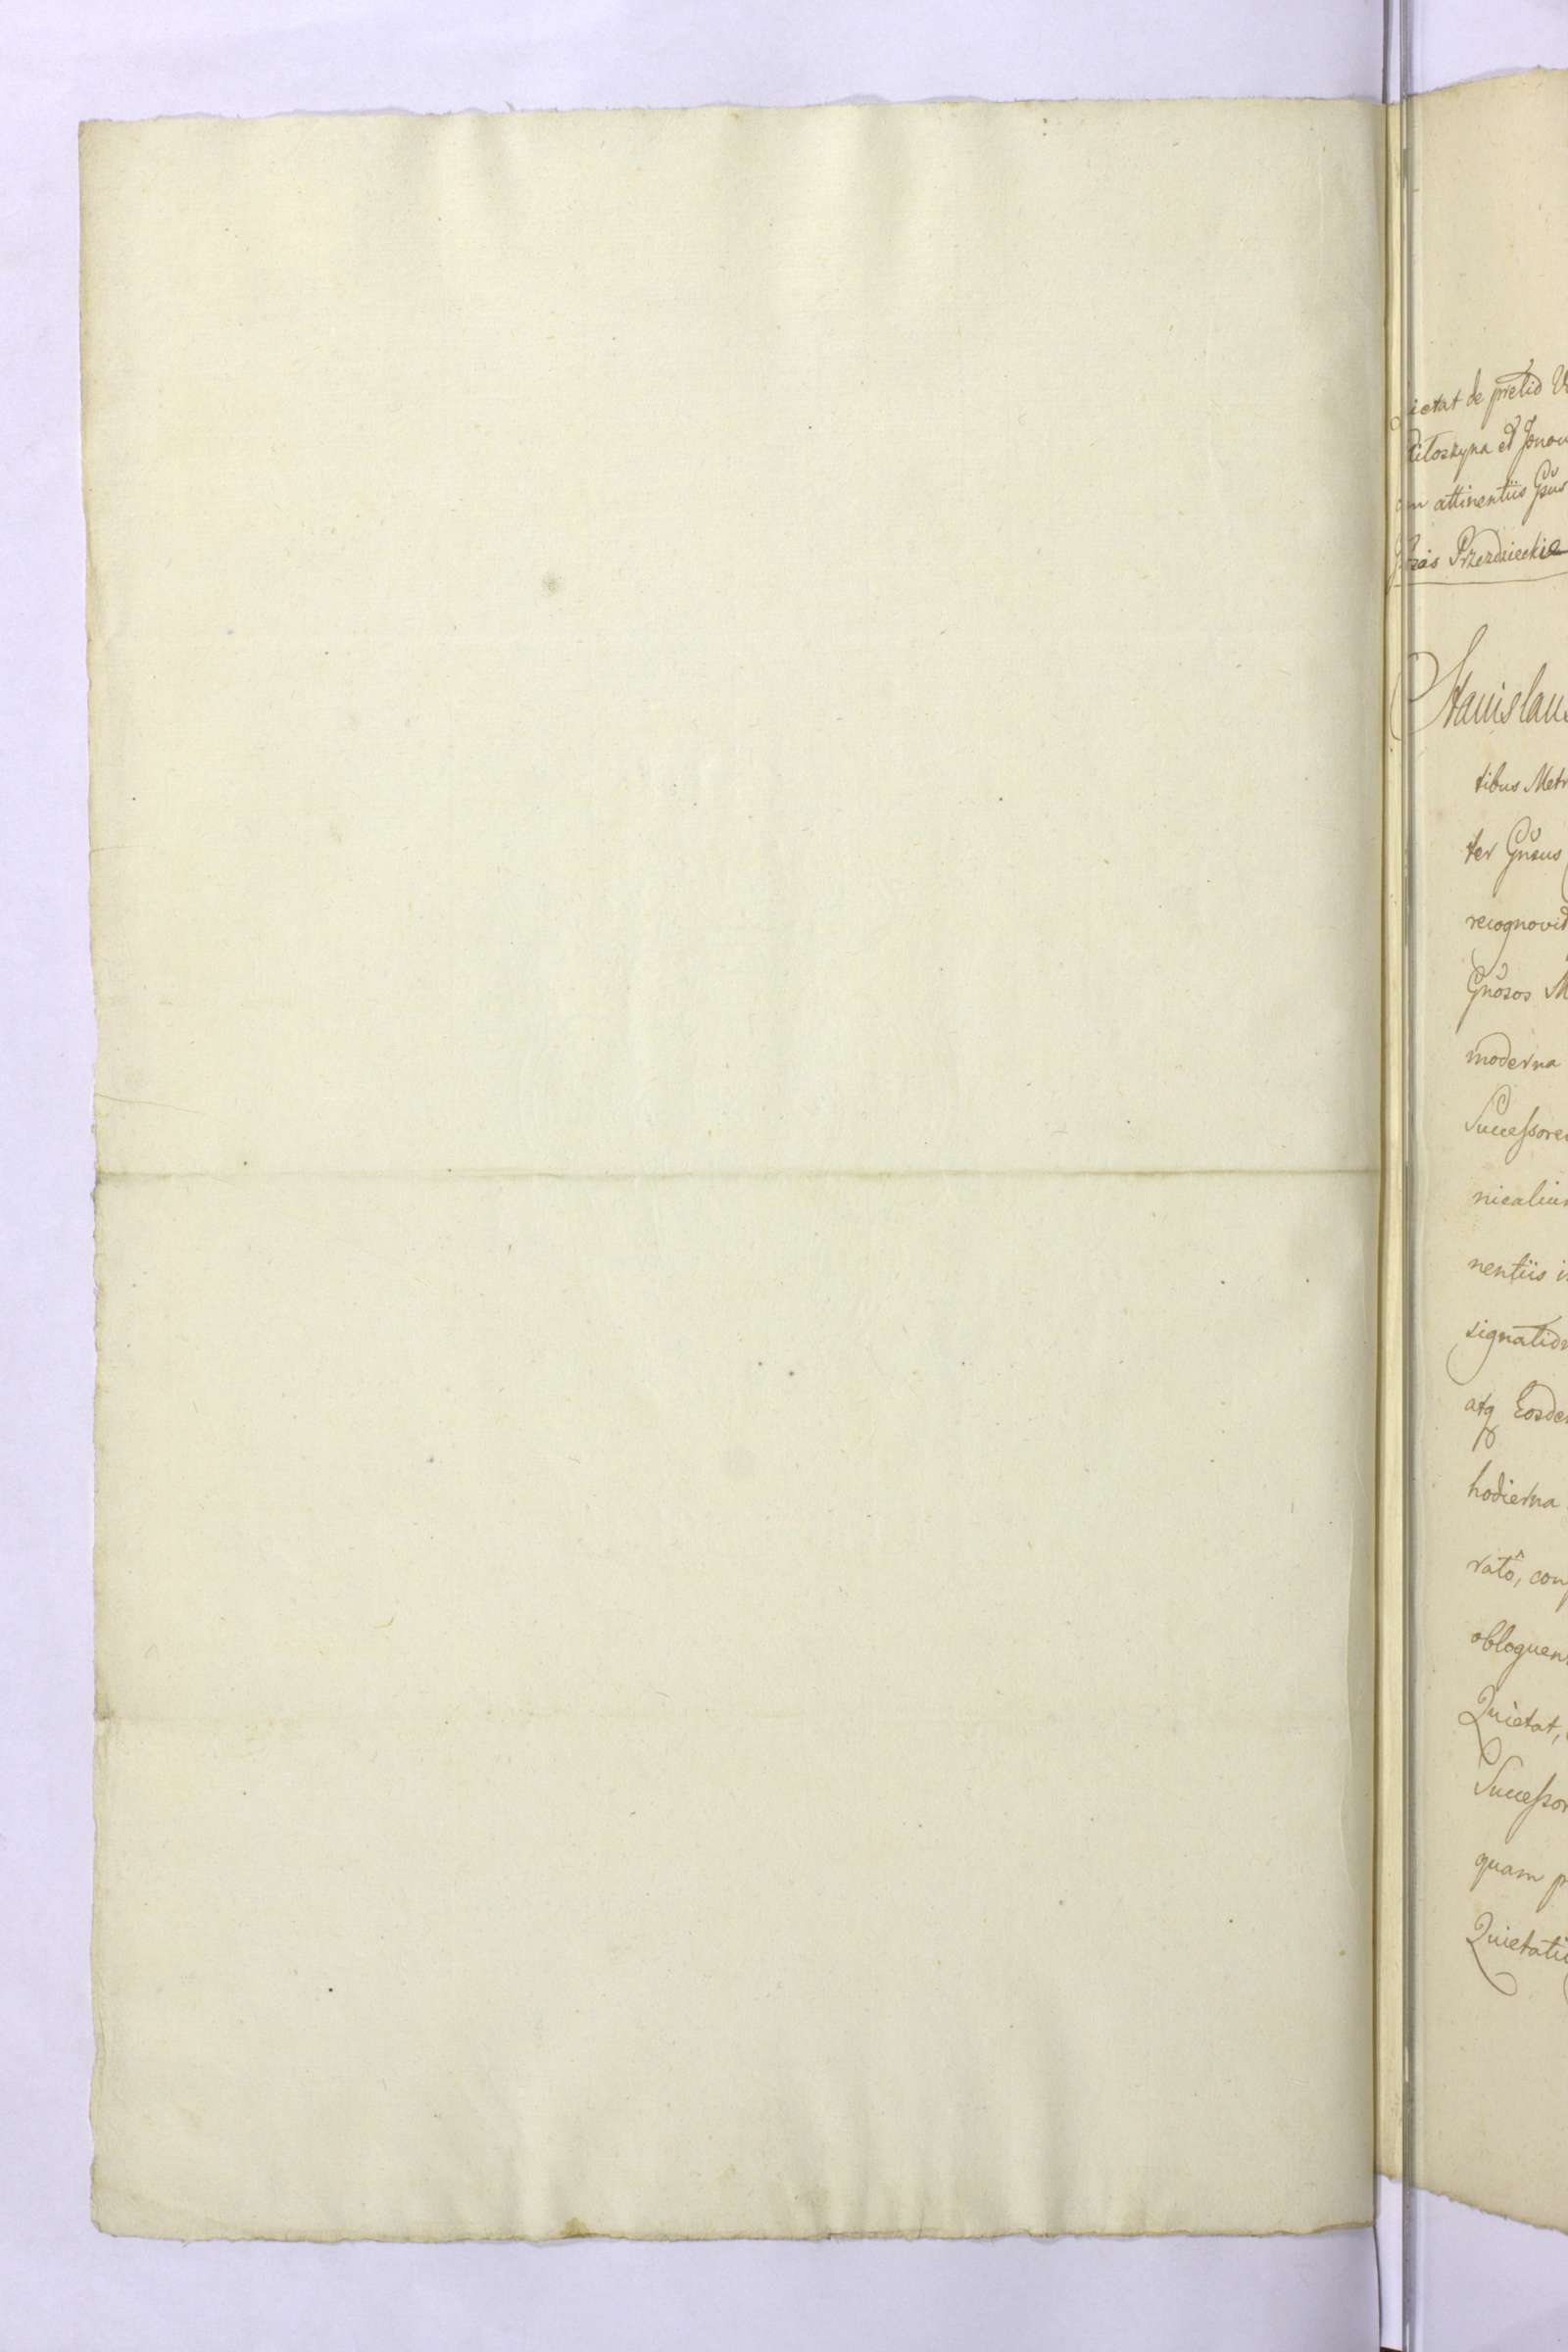 ictat de pretio
et
attinentiis
Przezdzieckie
Stanislaus
tibus Metr
ter Gnsus
recognovit
Gnosos M
moderna
Successores
nicalium
nentiis i
signation
atq Eosdem
hodierna
ratô, con
obloquen
Quietat,
Successor
quam p
Quietati